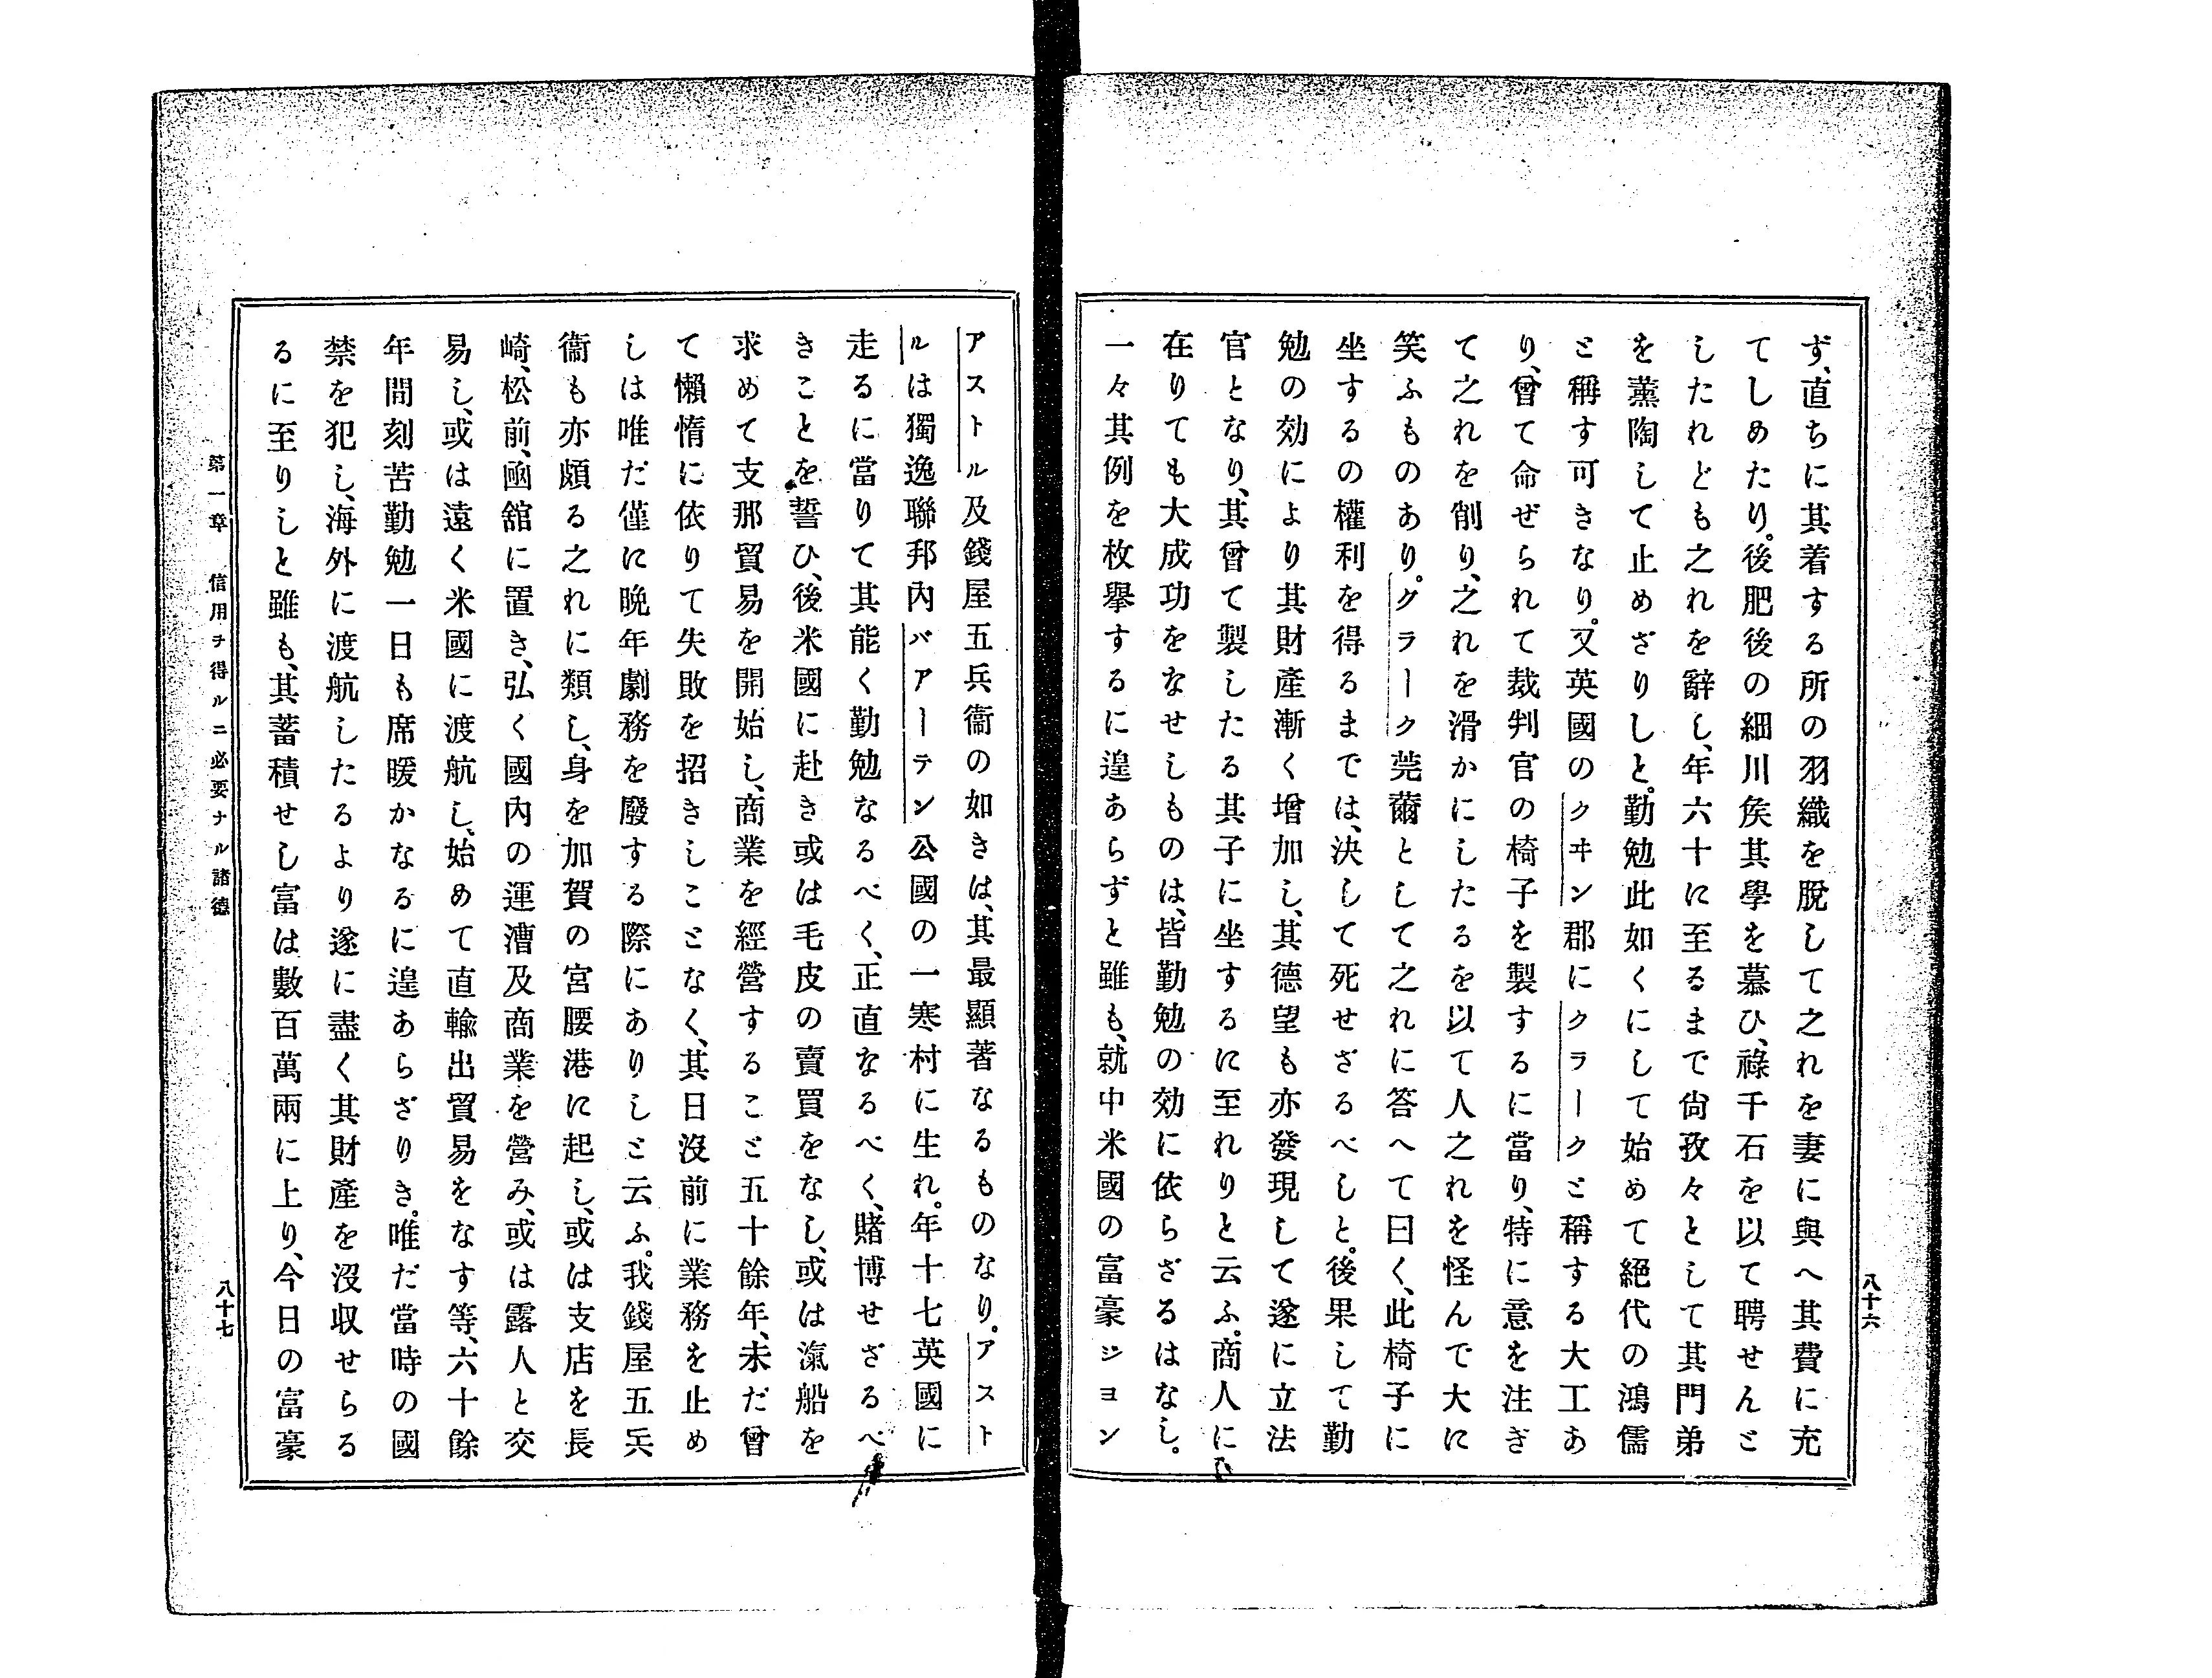 八十六
ず、直ちに其着する所の羽織を脫して之れを妻に與へ其費に充
てしめたり。後肥後の細川矦其學を慕ひ、祿千石を以て聘せんと
したれども之れを辭し、年六十に至るまで尙孜々として其門弟
を薰陶して止めざりしと。勤勉此如くにして始めて絕代の鴻儒
と稱す可きなり。又英國のクヰン郡にクラークと稱する大工あ
り、曾て命ぜられて裁判官の椅子を製するに當り、特に意を注ぎ
て之れを削り、之れを滑かにしたるを以て人之れを怪んで大に
笑ふものあり。グラーク莞薾として之れに答へて曰く、此椅子に
坐するの權利を得るまでは、決して死せざるべしと。後果して勤
勉の効により其財產漸く增加し、其德望も亦發現して遂に立法
官となり、其曾て製したる其子に坐するに至れりと云ふ。商人に
在りても大成功をなせしものは、皆勤勉の効に依らざるはなし。
一々其例を枚擧するに遑あらずと雖も、就中米國の富豪ジョン
アストル及錢屋五兵衞の如きは、其最顯著なるものなり。アスト
ルは獨逸聯邦內バアーテン公國の一寒村に生れ。年十七英國に
走るに當りて其能く勤勉なるべく、正直なるべく、賭博せざるべ
きことを誓ひ、後米國に赴き或は毛皮の賣買をなし、或は滊船を
求めて支那貿易を開始し、商業を經營すること五十餘年、未だ曾
て懶惰に依りて失敗を招きしことなく、其日沒前に業務を止め
しは唯だ僅に晩年劇務を廢する際にありしと云ふ。我錢屋五兵
衞も亦頗る之れに類し、身を加賀の宮腰港に起し、或は支店を長
崎、松前、凾舘に置き、弘く國內の運漕及商業を營み、或は露人と交
易し、或は遠く米國に渡航し、始めて直輸出貿易をなす等、六十餘
年間刻苦勤勉一日も席暖かなるに遑あらざりき。唯だ當時の國
禁を犯し、海外に渡航したるより遂に盡く其財產を沒収せらる
るに至りしと雖も、其蓄積せし富は數百萬兩に上り、今日の富豪
第一章 信用ヲ得ルニ必要ナル諸德
八十七